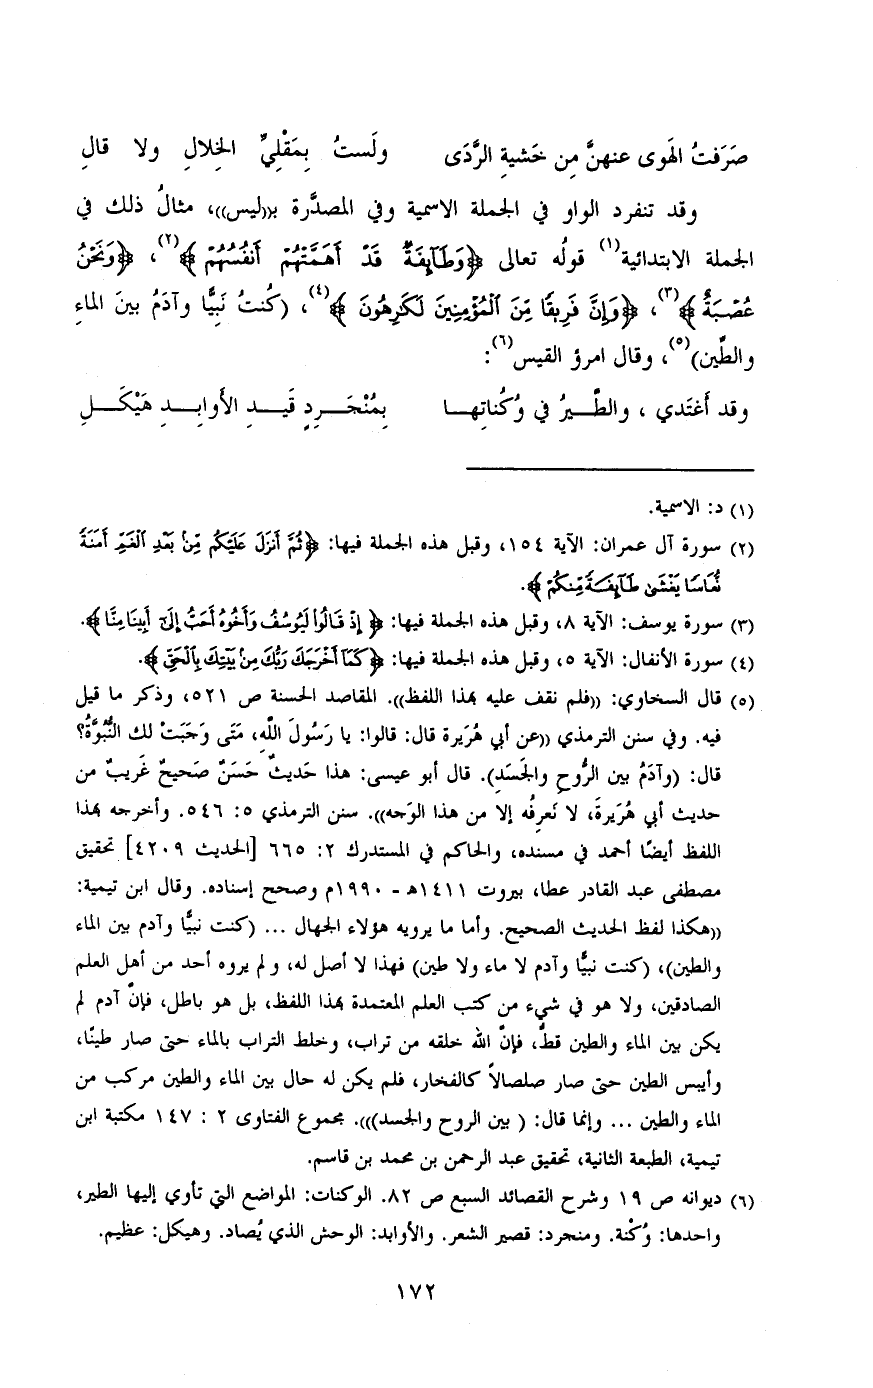 صَرَفتُ الهَوى عنهنَّ مِن خَشيةِ الرَّدَى ولَستُ بِمَقْلِيِّ الخِلالِ ولا قالِ
وقد تنفرد الواو في الجملة الاسمية وفي المصدَّرة بـ((ليس))، مثالُ ذلك في
الجملة الابتدائية(١) قولُه تعالى ﴿وَطَآئِفَةٌ قَدْ أَهَمَّتْهُمْ أَنفُسُهُمْ﴾(٢)، ﴿وَنَحْنُ
عُصْبَةٌ﴾(٣)، ﴿وَإِنَّ فَرِيقًا مِّنَ الْمُؤْمِنِينَ لَكَرِهُونَ﴾(٤)، (كُنتُ نَبِيًّا وآدَمُ بينَ الماءِ
والطِّين)(٥)، وقال امرؤ القيس(٦):
وقد أَغتَدي ، والطَّيرُ في وُكُناتِها بِمُنْجَرِدٍ قَيدِ الأَوابِدِ هَيْكَلِ
(١) د: الاسمية.
(٢) سورة آل عمران: الآية ١٥٤، وقبل هذه الجملة فيها: ﴿ثُمَّ أَنزَلَ عَلَيْكُم مِّنۢ بَعْدِ الْغَمِّ أَمَنَةً
نُّعَاسًا يَغْشَىٰ طَآئِفَةً مِّنكُمْ﴾.
(٣) سورة يوسف: الآية ٨، وقبل هذه الجملة فيها: ﴿إِذْ قَالُوا لَيُوسُفُ وَأَخُوهُ أَحَبُّ إِلَىٰٓ أَبِينَا مِنَّا﴾.
(٤) سورة الأنفال: الآية ٥، وقبل هذه الجملة فيها: ﴿كَمَآ أَخْرَجَكَ رَبُّكَ مِنۢ بَيْتِكَ بِالْحَقِّ﴾.
(٥) قال السخاوي: ((فلم نقف عليه بهذا اللفظ)). المقاصد الحسنة ص ٥٢١، وذكر ما قيل
فيه. وفي سنن الترمذي ((عن أبي هُرَيرة قال: قالوا: يا رَسُولَ اللَّهِ، مَتَى وَجَبَتْ لك النُّبُوَّةُ؟
قال: (وآدَمُ بين الرُّوحِ والجَسَدِ). قال أبو عيسى: هذا حَديثٌ حَسَنٌ صَحيحٌ غَريبٌ من
حديث أبي هُرَيرةَ، لا نَعرِفُه إلا من هذا الوَجه)). سنن الترمذي ٥: ٥٤٦. وأخرجه بهذا
اللفظ أيضًا أحمد في مسنده، والحاكم في المستدرك ٢: ٦٦٥ [الحديث ٤٢٠٩] تحقيق
مصطفى عبد القادر عطا، بيروت ١٤١١هـ - ١٩٩٠م وصحح إسناده. وقال ابن تيمية:
((هكذا لفظ الحديث الصحيح. وأما ما يرويه هؤلاء الجهال ... (كنت نبيًّا وآدم بين الماء
والطين)، (كنت نبيًّا وآدم لا ماء ولا طين) فهذا لا أصل له، و لم يروه أحد من أهل العلم
الصادقين، ولا هو في شيء من كتب العلم المعتمدة بهذا اللفظ، بل هو باطل، فإنّ آدم لم
يكن بين الماء والطين قطّ، فإنّ الله خلقه من تراب، وخلط التراب بالماء حتى صار طينًا،
وأيبس الطين حتى صار صلصالاً كالفخار، فلم يكن له حال بين الماء والطين مركب من
الماء والطين ... وإنما قال: ( بين الروح والجسد))). مجموع الفتاوى ٢ : ١٤٧ مكتبة ابن
تيمية، الطبعة الثانية، تحقيق عبد الرحمن بن محمد بن قاسم.
(٦) ديوانه ص ١٩ وشرح القصائد السبع ص ٨٢. الوكنات: المواضع التي تأوي إليها الطير،
واحدها: وُكْنة. ومنجرد: قصير الشعر. والأوابد: الوحش الذي يُصاد. وهيكل: عظيم.
١٧٢